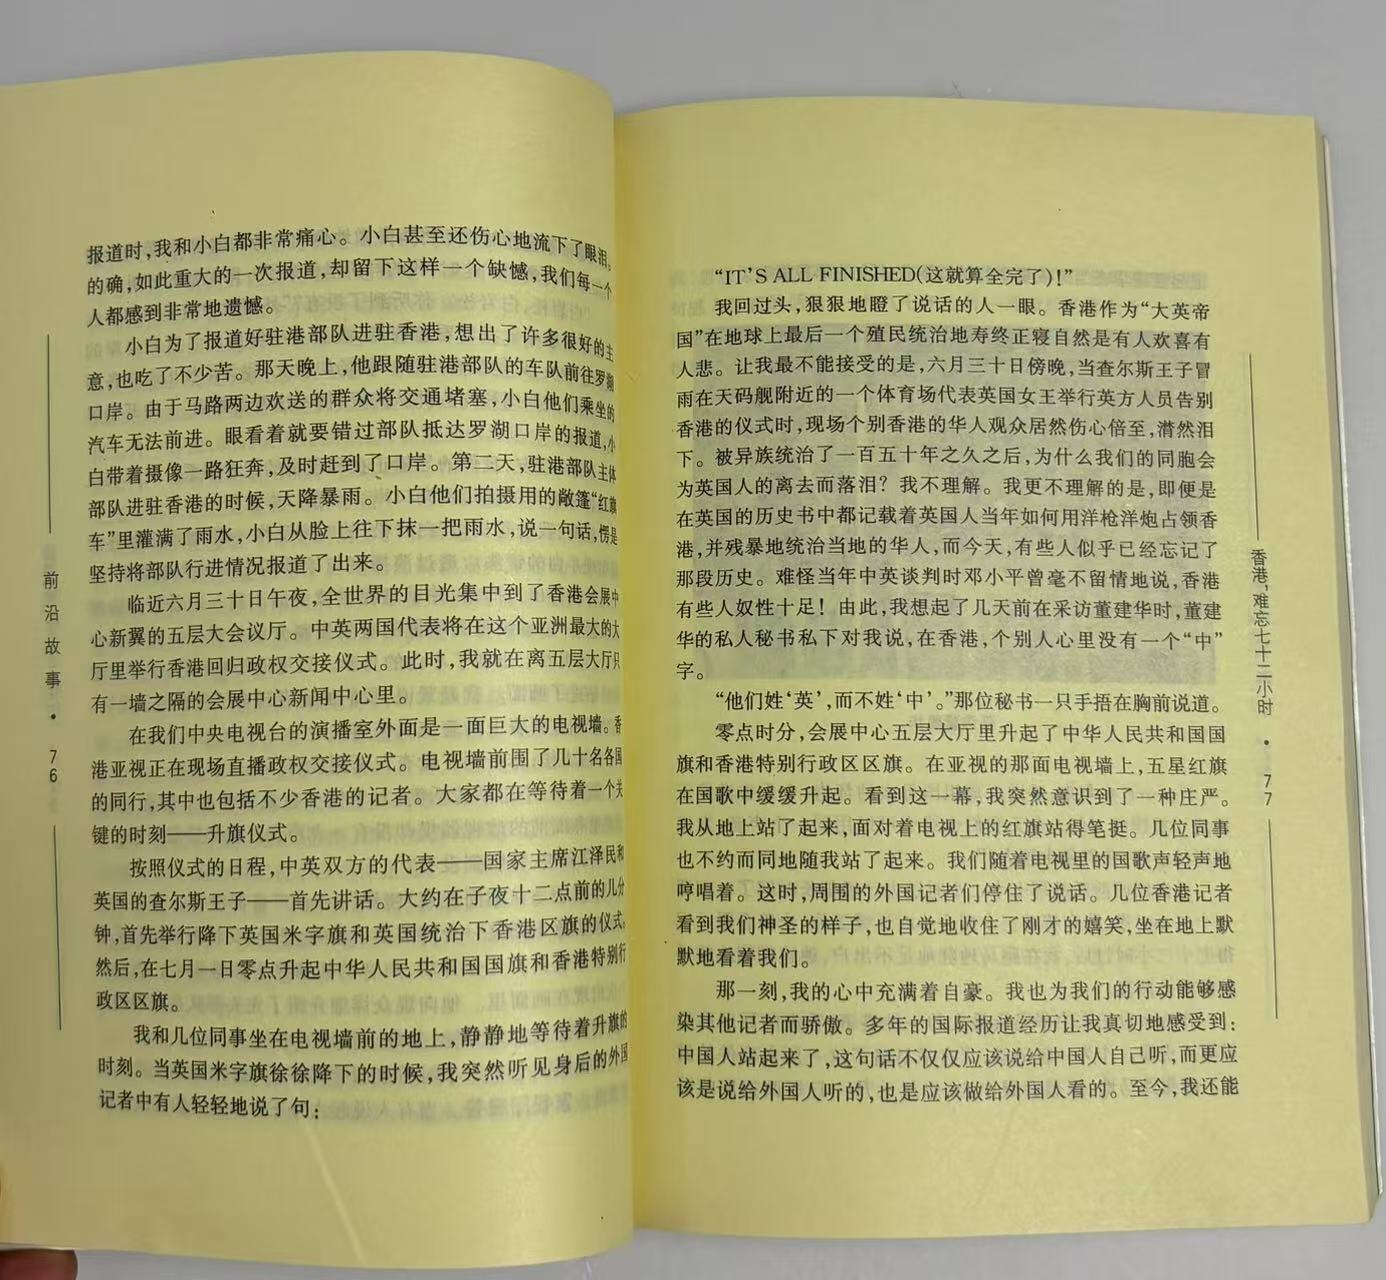 报道时,我和小白都非常痛心。小白甚至还伤心地流下了眼泪。
的确,如此重大的一次报道,却留下这样一个缺憾,我们每一个
人都感到非常地遗憾。
小白为了报道好驻港部队进驻香港,想出了许多很好的主
意,也吃了不少苦。那天晚上,他跟随驻港部队的车队前往罗湖
口岸。由于马路两边欢送的群众将交通堵塞,小白他们乘坐的
汽车无法前进。眼看着就要错过部队抵达罗湖口岸的报道,小
白带着摄像一路狂奔,及时赶到了口岸。第二天,驻港部队主体
部队进驻香港的时候,天降暴雨。小白他们拍摄用的敞篷“红旗
车”里灌满了雨水,小白从脸上往下抹一把雨水,说一句话,愣是
坚持将部队行进情况报道了出来。
临近六月三十日午夜,全世界的目光集中到了香港会展中
心新翼的五层大会议厅。中英两国代表将在这个亚洲最大的大
厅里举行香港回归政权交接仪式。此时,我就在离五层大厅只
有一墙之隔的会展中心新闻中心里。
在我们中央电视台的演播室外面是一面巨大的电视墙。香
港亚视正在现场直播政权交接仪式。电视墙前围了几十名各国
的同行,其中也包括不少香港的记者。大家都在等待着一个关
键的时刻——升旗仪式。
按照仪式的日程,中英双方的代表——国家主席江泽民和
英国的查尔斯王子——首先讲话。大约在子夜十二点前的几分
钟,首先举行降下英国米字旗和英国统治下香港区旗的仪式。
然后,在七月一日零点升起中华人民共和国国旗和香港特别行
政区区旗。
我和几位同事坐在电视墙前的地上,静静地等待着升旗的
时刻。当英国米字旗徐徐降下的时候,我突然听见身后的外国
记者中有人轻轻地说了句:
前沿故事·76
“IT'S ALL FINISHED(这就算全完了)!”
我回过头,狠狠地瞪了说话的人一眼。香港作为“大英帝
国”在地球上最后一个殖民统治地寿终正寝自然是有人欢喜有
人悲。让我最不能接受的是,六月三十日傍晚,当查尔斯王子冒
雨在天码舰附近的一个体育场代表英国女王举行英方人员告别
香港的仪式时,现场个别香港的华人观众居然伤心倍至,潸然泪
下。被异族统治了一百五十年之久之后,为什么我们的同胞会
为英国人的离去而落泪?我不理解。我更不理解的是,即便是
在英国的历史书中都记载着英国人当年如何用洋枪洋炮占领香
港,并残暴地统治当地的华人,而今天,有些人似乎已经忘记了
那段历史。难怪当年中英谈判时邓小平曾毫不留情地说,香港
有些人奴性十足!由此,我想起了几天前在采访董建华时,董建
华的私人秘书私下对我说,在香港,个别人心里没有一个“中”
字。
“他们姓‘英’,而不姓‘中’。”那位秘书一只手捂在胸前说道。
零点时分,会展中心五层大厅里升起了中华人民共和国国
旗和香港特别行政区区旗。在亚视的那面电视墙上,五星红旗
在国歌中缓缓升起。看到这一幕,我突然意识到了一种庄严。
我从地上站了起来,面对着电视上的红旗站得笔挺。几位同事
也不约而同地随我站了起来。我们随着电视里的国歌声轻声地
哼唱着。这时,周围的外国记者们停住了说话。几位香港记者
看到我们神圣的样子,也自觉地收住了刚才的嬉笑,坐在地上默
默地看着我们。
那一刻,我的心中充满着自豪。我也为我们的行动能够感
染其他记者而骄傲。多年的国际报道经历让我真切地感受到:
中国人站起来了,这句话不仅仅应该说给中国人自己听,而更应
该是说给外国人听的,也是应该做给外国人看的。至今,我还能
香港,难忘七十二小时·77